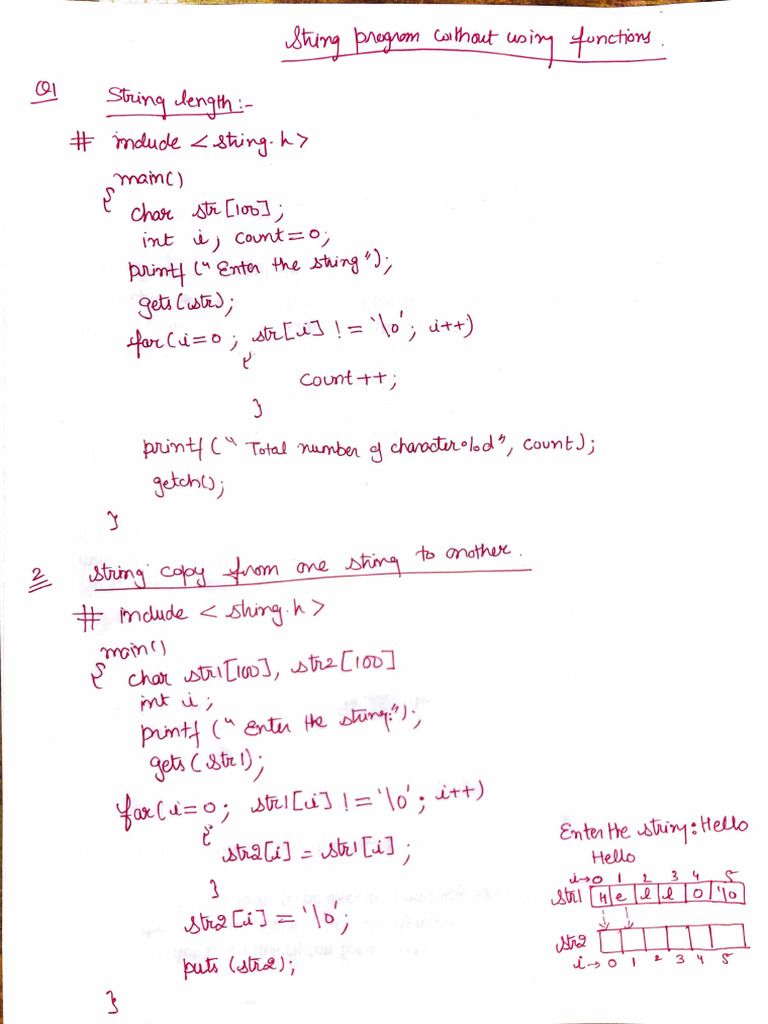 String program without using functions.
Q1 String length:-
# include <string.h>
main()
{
char str[100];
int i, count=0;
printf ("Enter the string");
gets(str);
for(i=0; str[i] != '\0'; i++)
{
count++;
}
printf ("Total number of character%d", count);
getch();
}
2 String copy from one string to another.
# include <string.h>
main()
{ char str1[100], str2[100]
int i;
printf ("Enter the string:");
gets(str1);
for(i=0; str1[i] != '\0'; i++)
{
str2[i] = str1[i];
}
str2[i] = '\0';
puts (str2);
}
Enter the string: Hello
Hello
i→0 1 2 3 4 5
str1 H e l l o '\0
str2
i→ 0 1 2 3 4 5